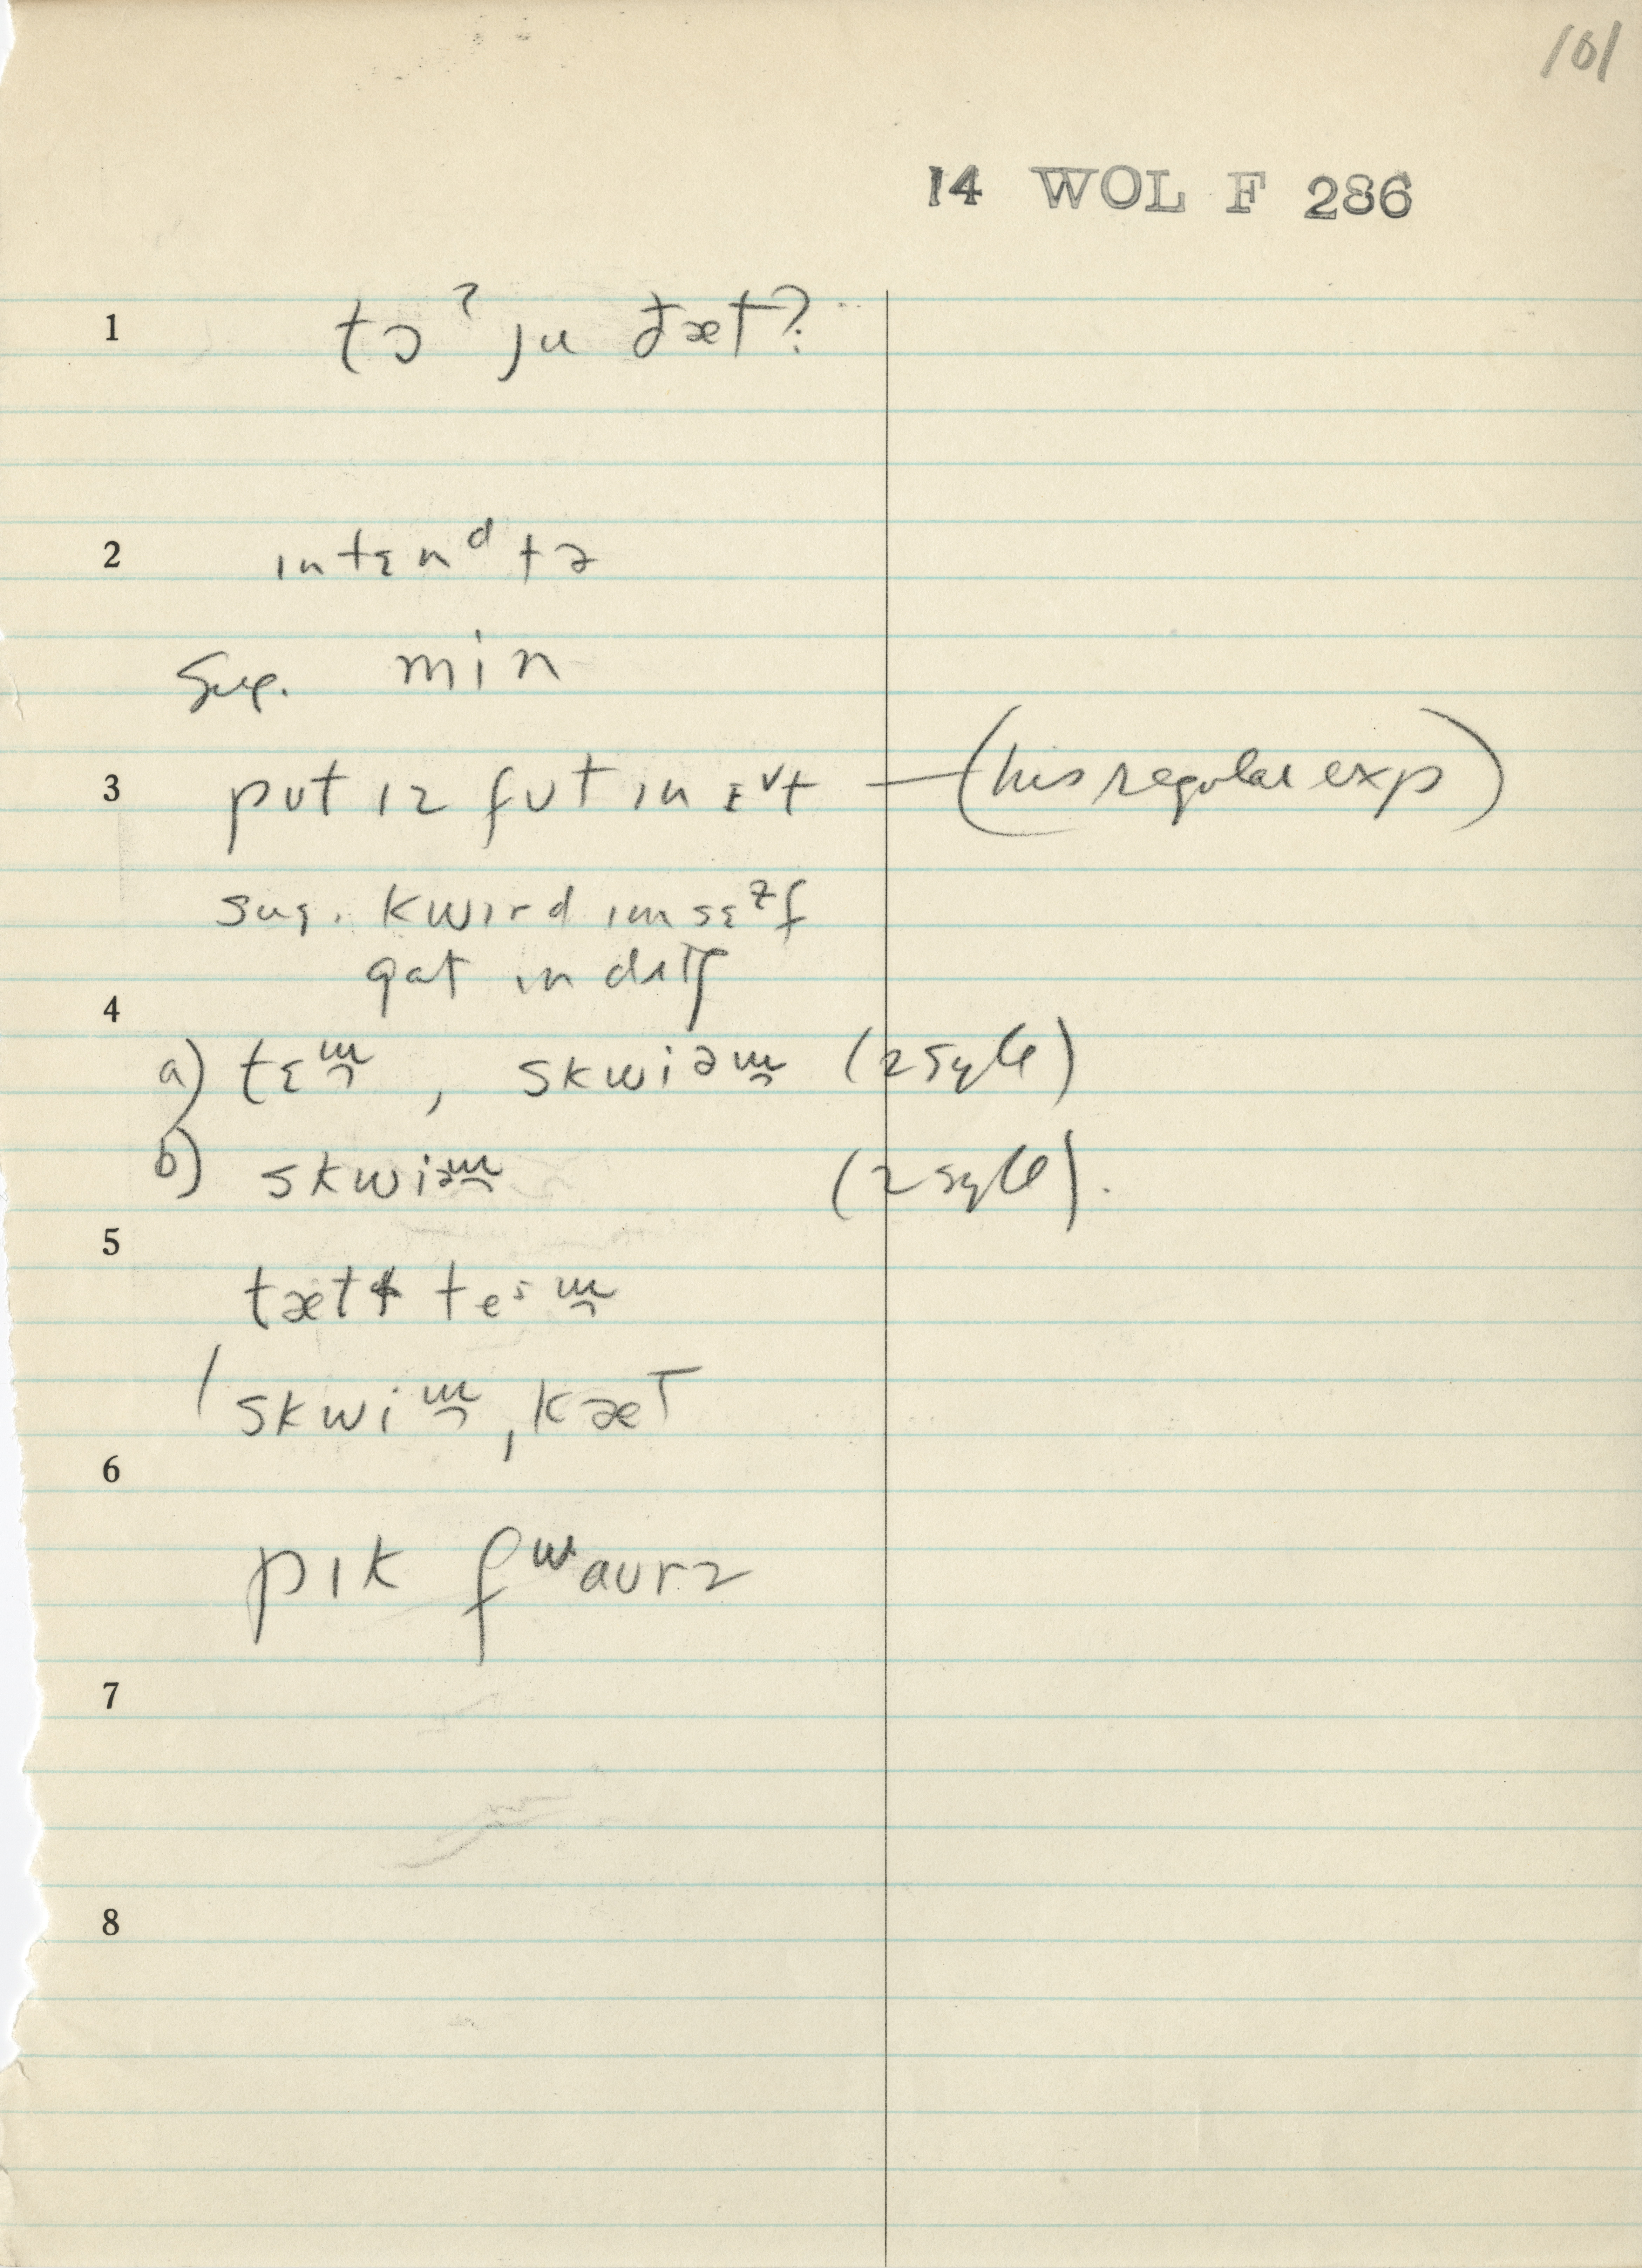 101
14 WOL F 286
1 tɔˀ ju ðæt?
2 ɪntɛnᵈ tə
Sug. min
3 pʊt ɪz fʊt ɪn ɪᵛt — (his regular exp)
sug. kwɪrd ɪmsɛᶻf
gat ɪn dʌtʃ
4
a) tɛm̯ , skwiəm̯ (2 syll)
b) skwiəm̯ (2 syll).
5
tæt teˢm̯
/ skwim̯, kæt
6
pɪk fʷaʊrz
7
8